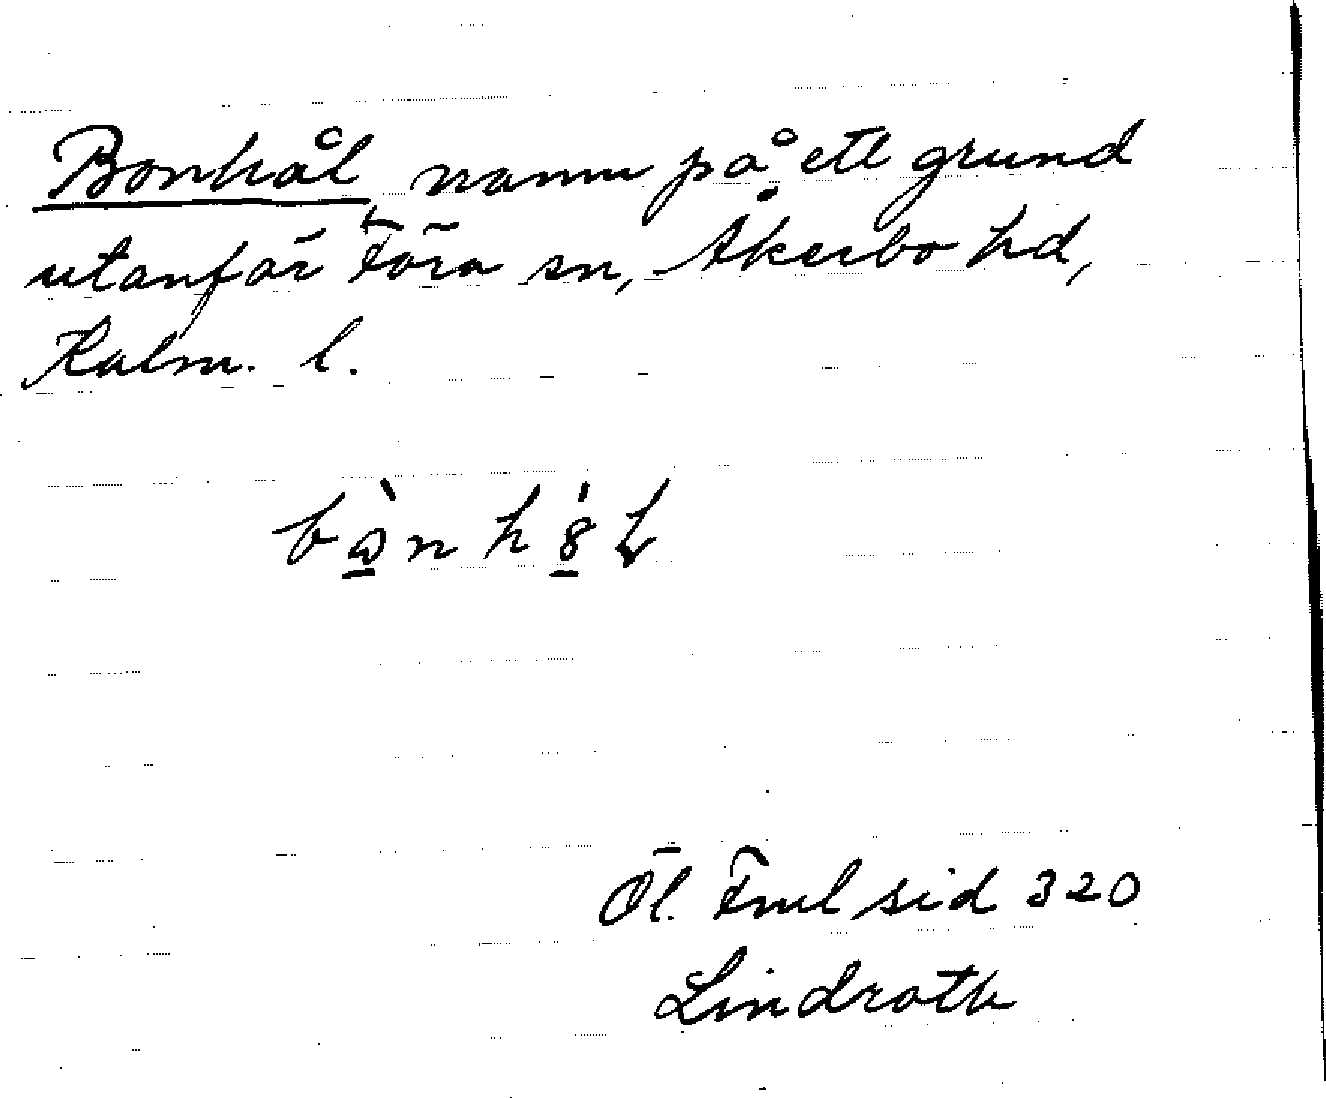 Bonhål, namn på ett grund
utanför Föra sn, Åkerbo hd,
Kalm. l.
Öl. Fml sid 320
Lindroth